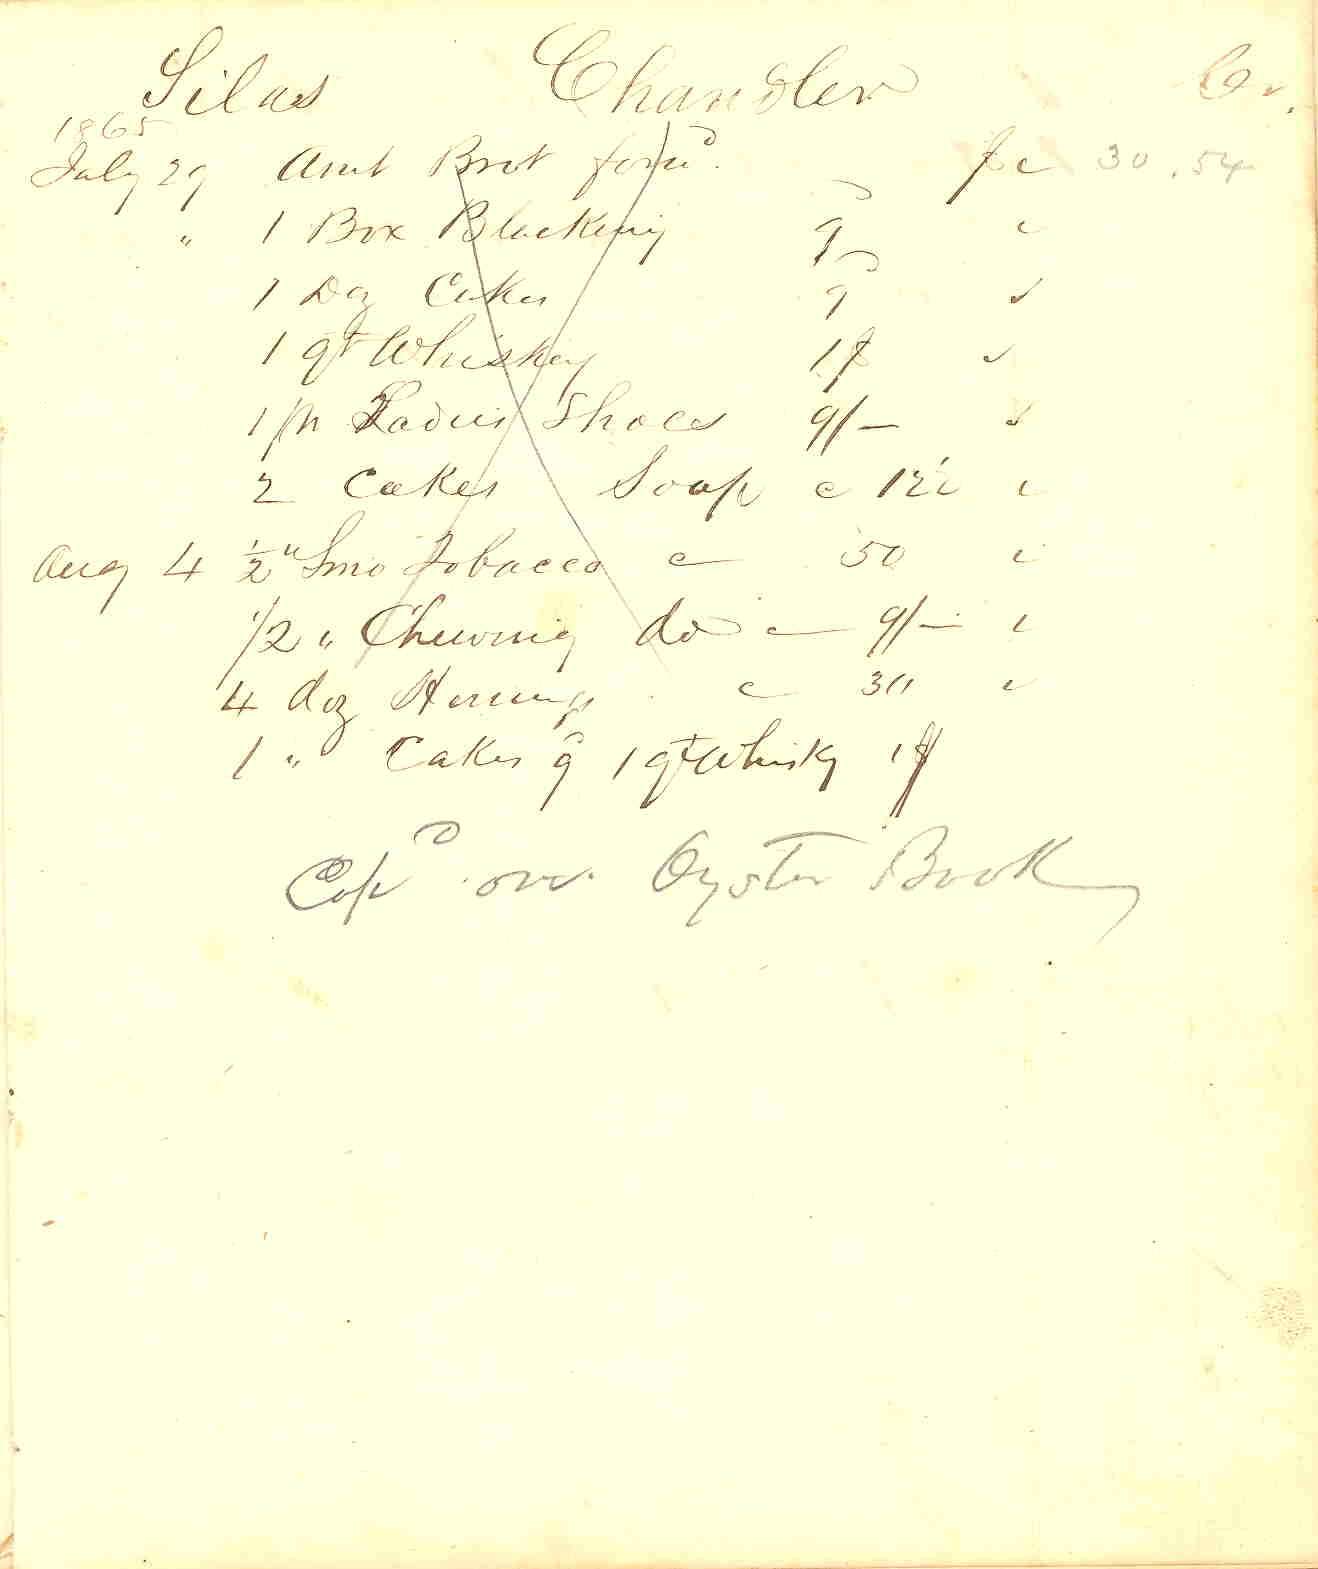 Silas Chandler Cr.
1865
July 29 Amt Brot forwd. $ c 30.54
" 1 Box Blacking 9
1 Doz Cakes 9
1 qt Whiskey 1$
1 pr Ladies Shoes 9/–
2 Cakes Soap c 12½
Aug 4 ½ " Smo Tobacco c 50
1/2 " Chewing do 9/–
4 doz Herrings c 30
1 " Cakes 9 1 qt Whisky 1$
Copd over Oyster Book